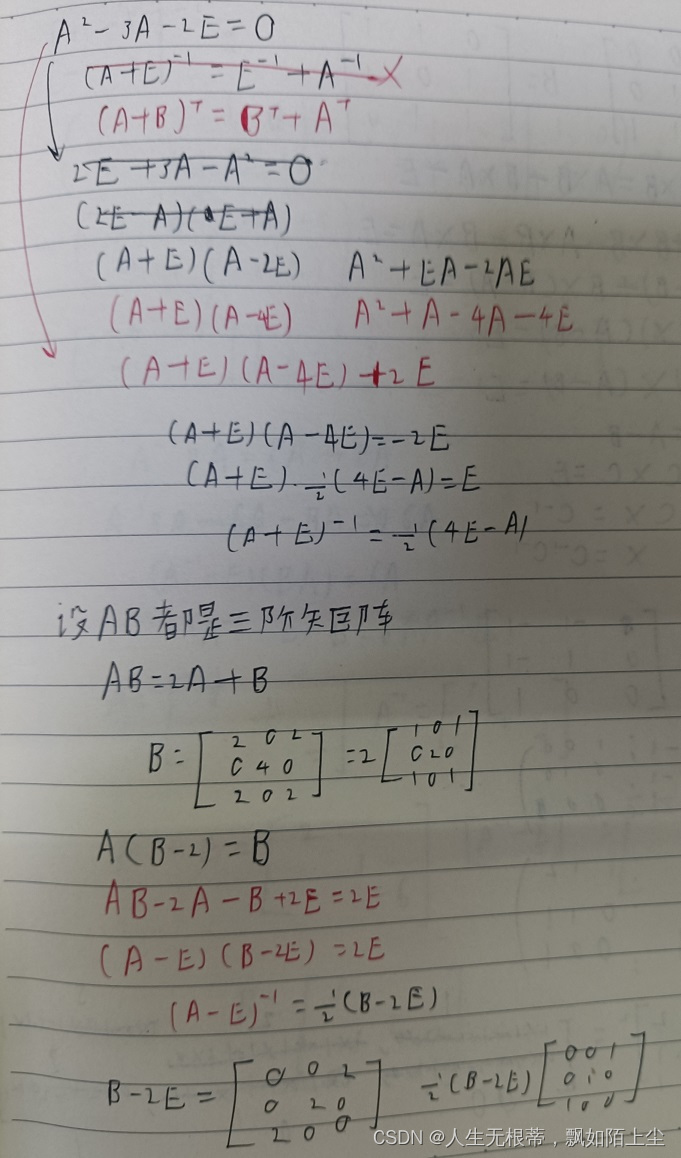 A² - 3A - 2E = 0
(A+E)⁻¹ = E⁻¹ + A⁻¹ X
(A+B)ᵀ = Bᵀ + Aᵀ
2E + 3A - A² = 0
(2E - A)(E+A)
(A+E)(A-2E) A² + EA - 2AE
(A+E)(A-4E) A² + A - 4A - 4E
(A+E)(A-4E) +2E
(A+E)(A-4E) = -2E
(A+E)·½(4E-A) = E
(A+E)⁻¹ = ½(4E-A)
设AB都是三阶矩阵
AB = 2A + B
B = [2 0 2; 0 4 0; 2 0 2] = 2 [1 0 1; 0 2 0; 1 0 1]
A(B-2) = B
AB - 2A - B + 2E = 2E
(A-E)(B-2E) = 2E
(A-E)⁻¹ = ½(B-2E)
B-2E = [0 0 2; 0 2 0; 2 0 0] ½(B-2E) [0 0 1; 0 1 0; 1 0 0]
CSDN @人生无根蒂，飘如陌上尘